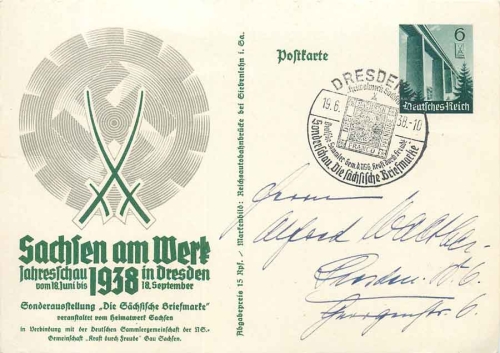 Sachsen am Werk
Jahresschau 1938 in Dresden
vom 18. Juni bis 18. September
Sonderausstellung „Die Sächsische Briefmarke"
veranstaltet vom Heimatwerk Sachsen
in Verbindung mit der Deutschen Sammlergemeinschaft der NS.-
Gemeinschaft „Kraft durch Freude" Gau Sachsen.
Abgabepreis 15 Rpf. / Markenbild: Reichsautobahnbrücke bei Siebenlehn i. Sa.
Postkarte
6
Deutsches Reich
DRESDEN
19.6. 38.-10
Sonderschau: Die sächsische Briefmarke
Herrn
Alfred
Dresden